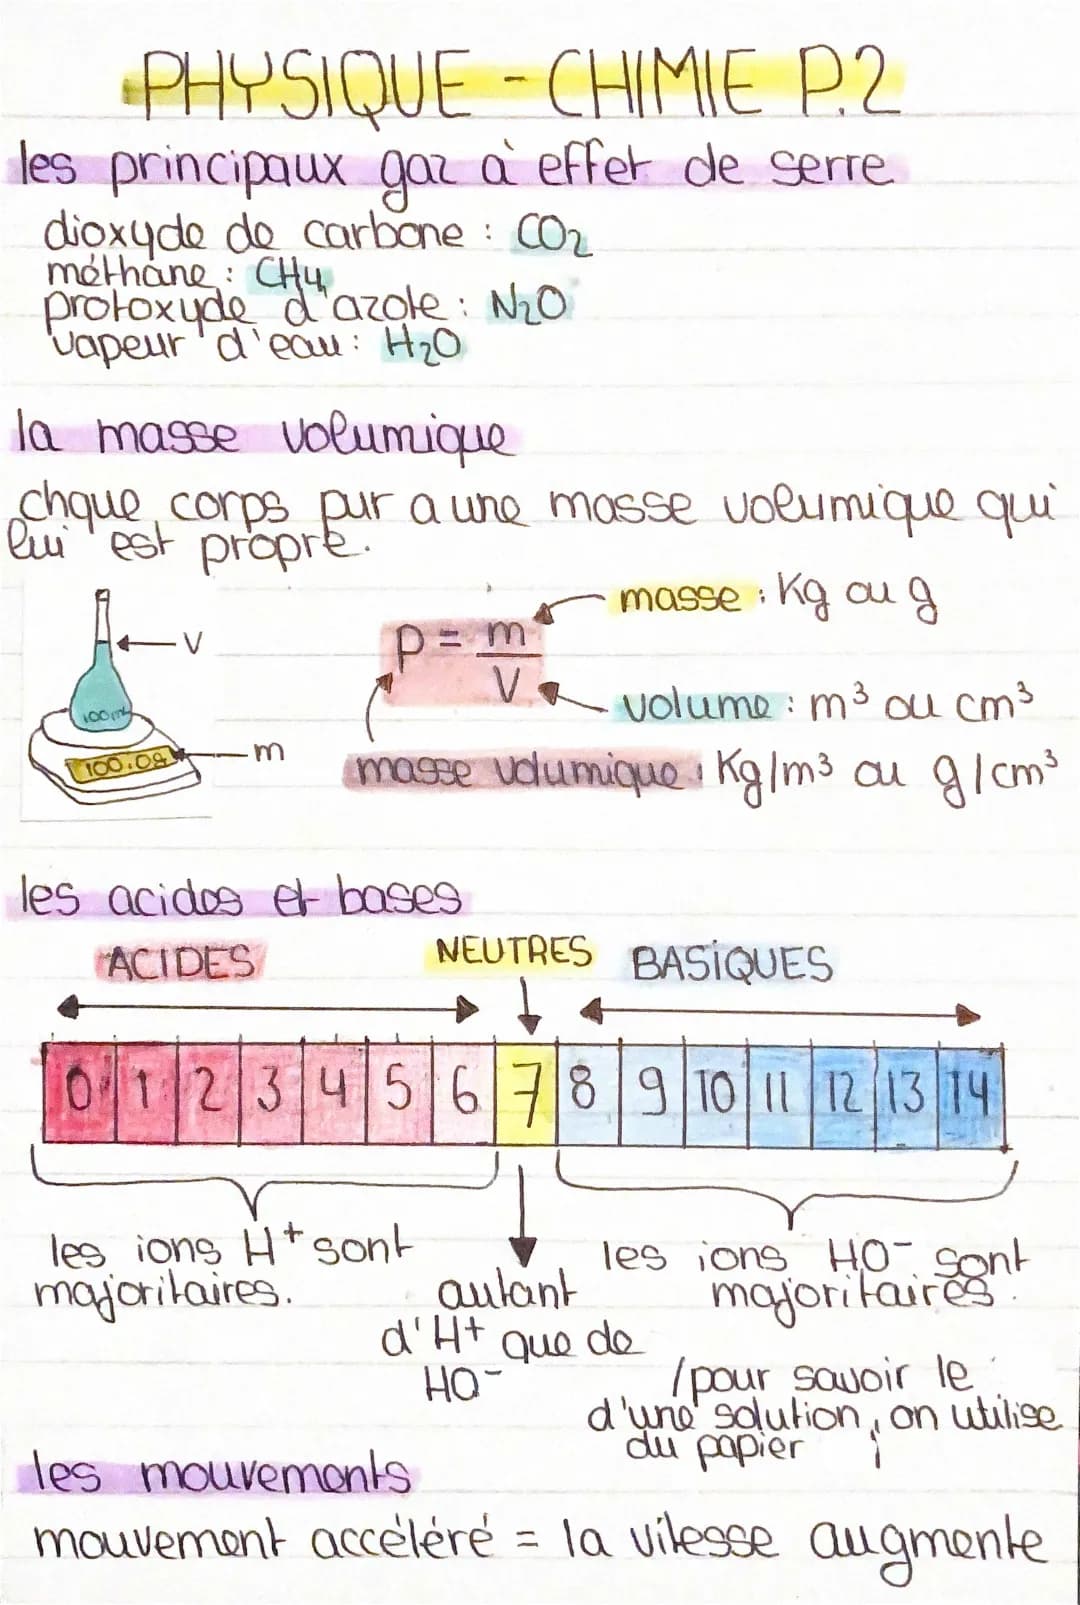 PHYSIQUE - CHIMIE P.2
les principaux gaz à effet de serre
dioxyde de carbone : CO₂
méthane : CH₄
protoxyde d'azote : N₂O
vapeur d'eau : H₂O
la masse volumique
chque corps pur a une masse volumique qui
lui est propre.
masse : Kg ou g
V
ρ = m/V
100mL
volume : m³ ou cm³
m
100.0g
masse volumique : Kg/m³ ou g/cm³
les acides et bases
ACIDES NEUTRES BASIQUES
0 1 2 3 4 5 6 7 8 9 10 11 12 13 14
les ions H⁺ sont
majoritaires.
autant
d'H⁺ que de
HO⁻
les ions HO⁻ sont
majoritaires.
/pour savoir le
d'une solution, on utilise
du papier
les mouvements
mouvement accéléré = la vitesse augmente